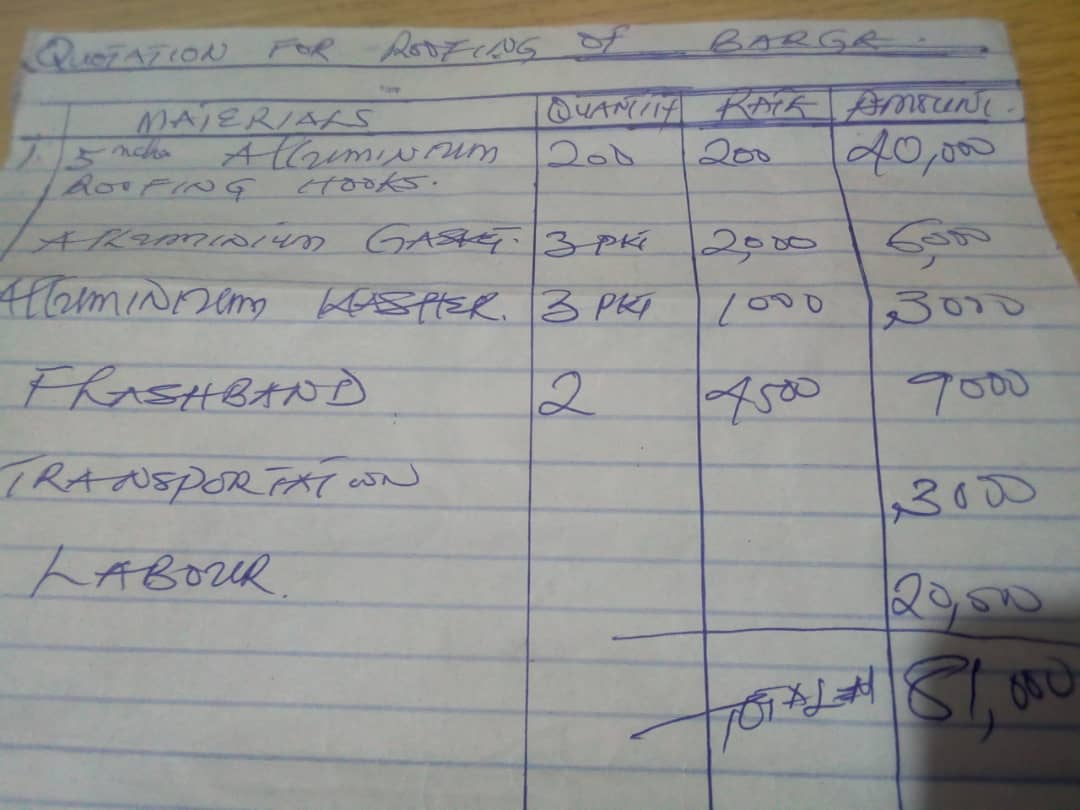 QUOTATION FOR ROOFING OF BARGE.
MATERIALS QUANTITY RATE AMOUNT.
1. 5 inches Alluminium 200 200 40,000
ROOFING HOOKS.
Aluminium GASKET. 3 PKT 2,000 6,000
Alluminium WASHER. 3 PKT 1000 3000
FLASHBAND 2 4500 9000
TRANSPORTATION 3000
LABOUR. 20,000
TOTAL = N 81,000